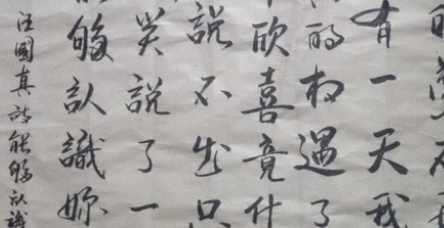 有一天我
的相遇了
欣喜竟什
說不出只
笑說了一
夠認識妳
汪國真詩能夠認識